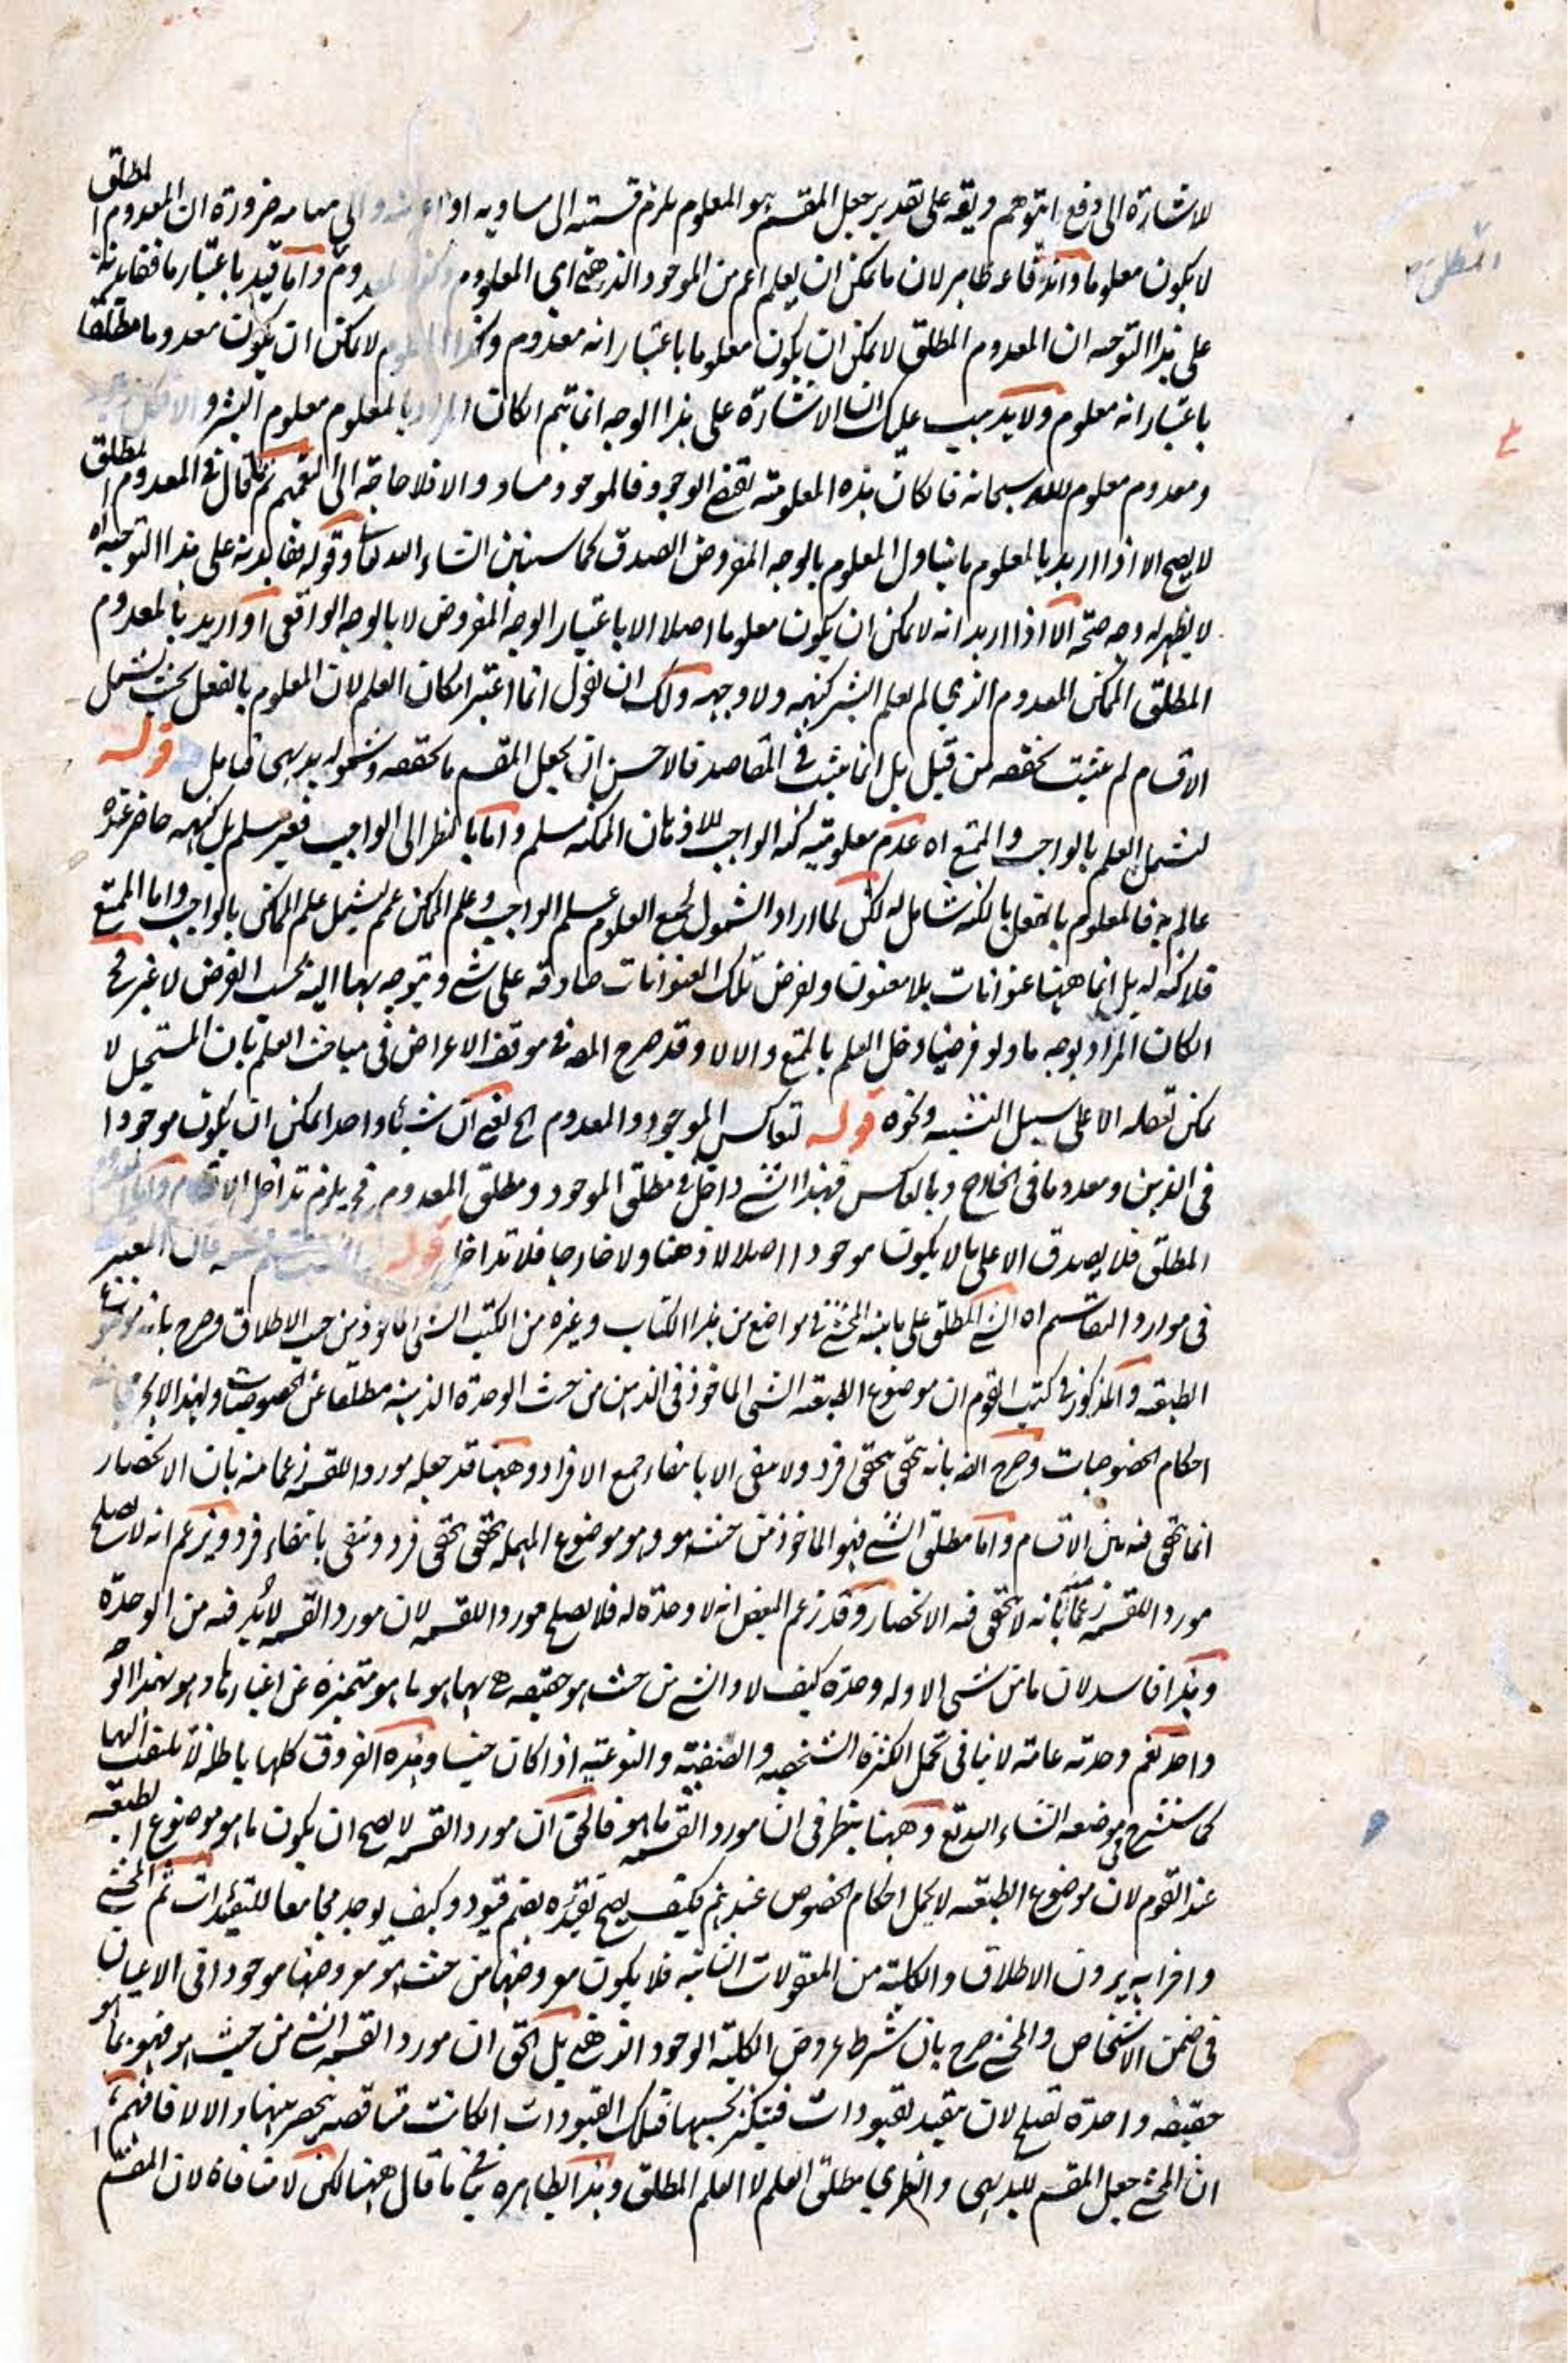 لاشارة الى دفع التوهم ويقه على تقدير جعل المقسم هو المعلوم يلزم قسمته الى مساويه او والى مباينه ضرورة ان المعدوم المطلق
لا يكون معلوما واندفاعه ظاهر لان ما يمكن ان يعلم اعم من الموجود الذهني اى المعلوم واما قيد باعتبار ما ففائدته
على هذا التوجيه ان المعدوم المطلق لا يمكن ان يكون معلوما باعتبار انه معدوم وكذا لا يمكن ان يكون معدوما مطلقا
باعتبار انه معلوم ولا يذهب عليك ان الاشارة على هذا الوجه انما يتم ان كان المراد بالمعلوم معلوم البشر و
ومعدوم معلوم لله سبحانه فان كان هذه المعلومية تقتضي الوجود فالموجود مساو والا فلا حاجة الى التعميم ثم ما قال في المعدوم المطلق
لا يصح الا اذا اريد بالمعلوم ما يتناول المعلوم بالوجه المفروض الصدق كما سنبين انشاء الله تعالى وقوله ففائدته على هذا التوجيه اه
لا يظهر له وجه صحة الا اذا اريد انه لا يمكن ان يكون معلوما اصلا الا باعتبار الوجه المفروض لا بالوجه الواقعي او اريد بالمعدوم
المطلق الممكن المعدوم الذي لم يعلم البشر كنهه ولا وجهه ولك ان تقول انما اعتبر امكان العلم لان المعلوم بالفعل بحيث يشمل
الاقسام لم يثبت تحققه من قبل بل انما يثبت في المقاصد فالاحسن ان يجعل المقسم ما تحققه وشموله بديهي تامل قوله
ليشمل العلم بالواجب والممتنع اه عدم معلومية كنه الواجب للاذهان الممكنة مسلم واما بالنظر الى الواجب فغير مسلم بل كنهه حاضر عنده
عالم به فالمعلوم بالفعل بالكنه شامل له لكن لما اراد الشمول لجميع العلوم علم الواجب وعلم الممكن عمم ليشمل علم الممكن بالواجب واما الممتنع
فلا كنه له بل انما ههنا عنوانات بلا معنون ويفرض تلك العنوانات صادقة على شيء ويتوجه بها اليه بحسب الفرض لا غير فح
ان كان المراد بوجه ما ولو فرضيا دخل العلم بالممتنع والا لا وقد صرح المص في موقف الاعراض في مباحث العلم بان المستحيل لا
يمكن تعقله الا على سبيل التشبيه ونحوه قوله لتعاكس الموجود والمعدوم الخ يعنى ان شيئا واحدا يمكن ان يكون موجودا
في الذهن ومعدوما في الخارج وبالعكس فهذا الشيء داخل في مطلق الموجود ومطلق المعدوم فح يلزم تداخل الاقسام واما المعدوم
المطلق فلا يصدق الا على ما لا يكون موجودا اصلا لا ذهنا ولا خارجا فلا تداخل قوله فان المعتبر
في موارد التقاسيم اه الشيء المطلق على ما بينه المحشي في مواضع من هذا الكتاب وغيره من الكتب الشيء الماخوذ من حيث الاطلاق وصرح بانه موضوع
الطبيعة والمذكور في كتب القوم ان موضوع الطبيعة الشيء الماخوذ في الذهن من حيث الوحدة الذهنية مطلقا عن الخصوصيات ولهذا لا يجرى
احكام الخصوصيات وصرح ايضا بانه يتحقق بتحقق فرد ولا ينتفى الا بانتفاء جميع الافراد وههنا قد جعله موردا للقسمة زعما منه بان الانحصار
انما يتحقق فيه بين الاقسام واما مطلق الشيء فهو الماخوذ من حيث هو وهو موضوع المهملة يتحقق بتحقق فرد وينتفى بانتفاء فرد ويزعم انه لا يصلح
موردا للقسمة زعما بانه لا يتحقق فيه الانحصار وقد زعم البعض انه لا وحدة له فلا يصلح موردا للقسمة لان مورد القسمة لا بد فيه من الوحدة
وهذا فاسد لان ما من شيء الا وله وحدة كيف لا والشيء من حيث هو حقيقة هي بها هو ما هو متميزة عن اغيارها وهو بهذا الوجه
واحد نعم وحدته عامة لا ينافي تحمل الكثرة الشخصية والصنفية والنوعية اذا كان جنسا وهذه الفروق كلها باطلة لا يلتفت اليها
كما سنشرح في موضعه انشاء الله تع وههنا ينظر في ان مورد القسمة ما هو فالحق ان مورد القسمة لا يصح ان يكون ما هو موضوع الطبيعة
عند القوم لان موضوع الطبيعة لا يحمل احكام الخصوص عندهم فكيف يصح تقيده بضم قيود وكيف يوجد مجامعا للتقيدات ثم المحشي
واضرابه يرون الاطلاق والكلية من المعقولات الثانية فلا يكون معروضها من حيث هو معروضها موجودا في الاعيان
في ضمن الاشخاص والمحشي صرح بان شرط عروض الكلية الوجود الذهني بل الحق ان مورد القسمة الشيء من حيث هو فهو بما هو
حقيقة واحدة تصلح لان يتقيد بقيودات فيتكثر بحسبها فتلك القيودات ان كانت متناقضة ينحصر بينها والا لا فافهم ثم
ان المحشي جعل المقسم للبديهي والنظري مطلق العلم لا العلم المطلق وهذا بظاهره ينافي ما قال ههنا لكن لا منافاة لان المقسم